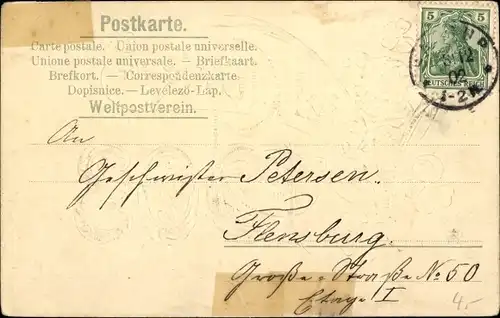 Postkarte.
Carte postale. – Union postale universelle.
Unione postale universale. – Briefkaart.
Brefkort. – Correspondenzkarte.
Dopisnice. – Levelező-Lap.
Weltpostverein.
5 5
DEUTSCHES REICH
12
02
1-2N
An
Geschwister Petersen.
Flensburg.
Große-Straße No 50
Etage I
4,-